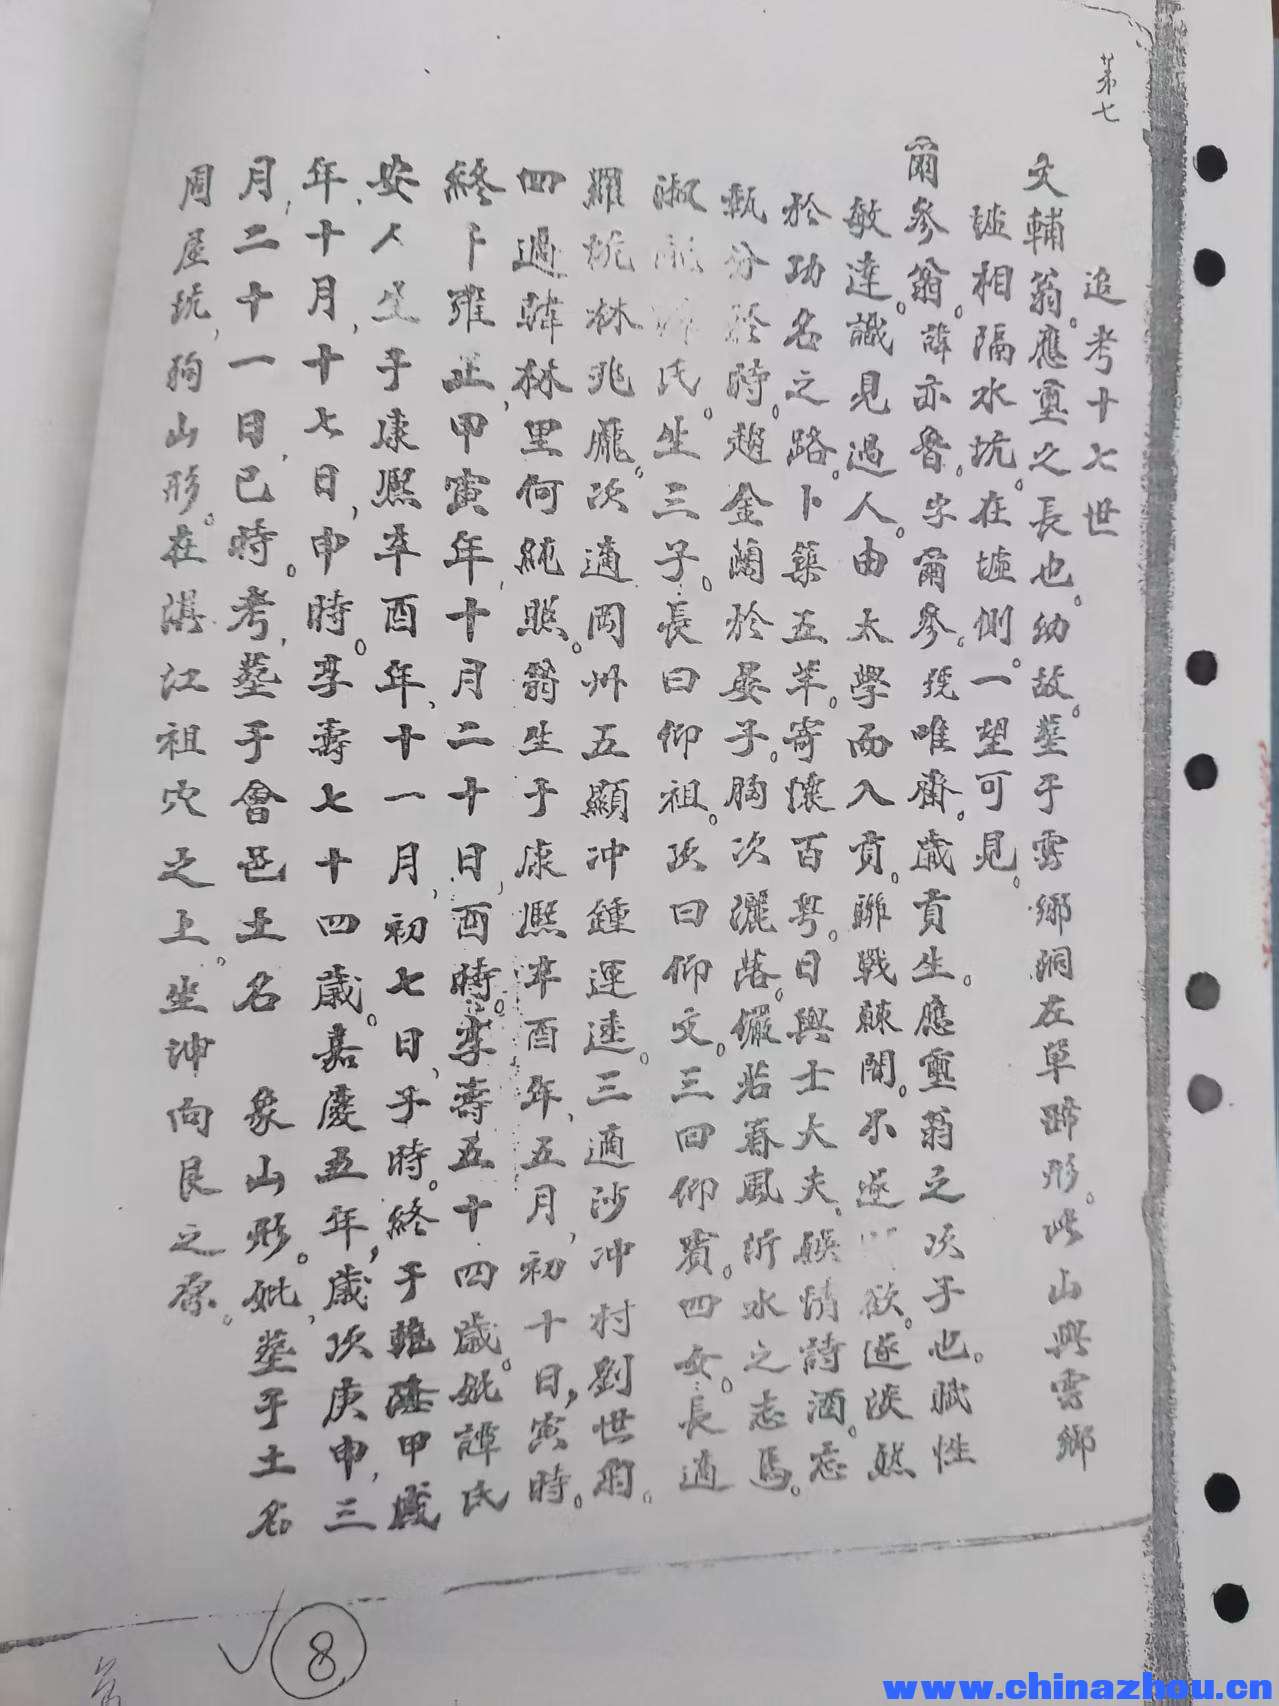 第七
追考十七世
文輔翁。應重之長也。幼故。塟于雲鄉洞左單蹄形。此山與雲鄉
墟相隔水坑。在墟側。一望可見。
爾參翁。諱亦魯。字爾參。號唯齋。歲貢生。應重翁之次子也。賦性
敏達。識見過人。由太學而入貢。聯戰棘闈。不遂 欲。遂淡然
於功名之路。卜築五羊。寄懷百粤。日與士大夫、娛情詩酒。忘
甄分於時。趙金蘭於晏子。胸次灑落。儼若春風沂水之志焉。
淑 氏。生三子。長曰仰祖。次曰仰文。三曰仰賓。四女。長適
羅坑林兆龐。次適岡州五顯冲鍾運達。三適沙冲村劉世 。
四適韓林里何純熙。翁生于康熙辛酉年、五月、初十日、寅時。
終卜雍正、甲寅年、十月二十日、酉時。享壽五十四歲。妣譚氏
安人生于康熙辛酉年、十一月、初七日、子時。終于乾隆甲戌
年、十月、十七日、申時。享壽七十四歲。嘉慶五年、歲次庚申、三
月、二十一日、巳時。考、塟于會邑土名 象山形。妣、塟于土名
周屋坑、狗山形。在滘江祖穴之上。坐坤向艮之原。
8
www.chinazhou.cn